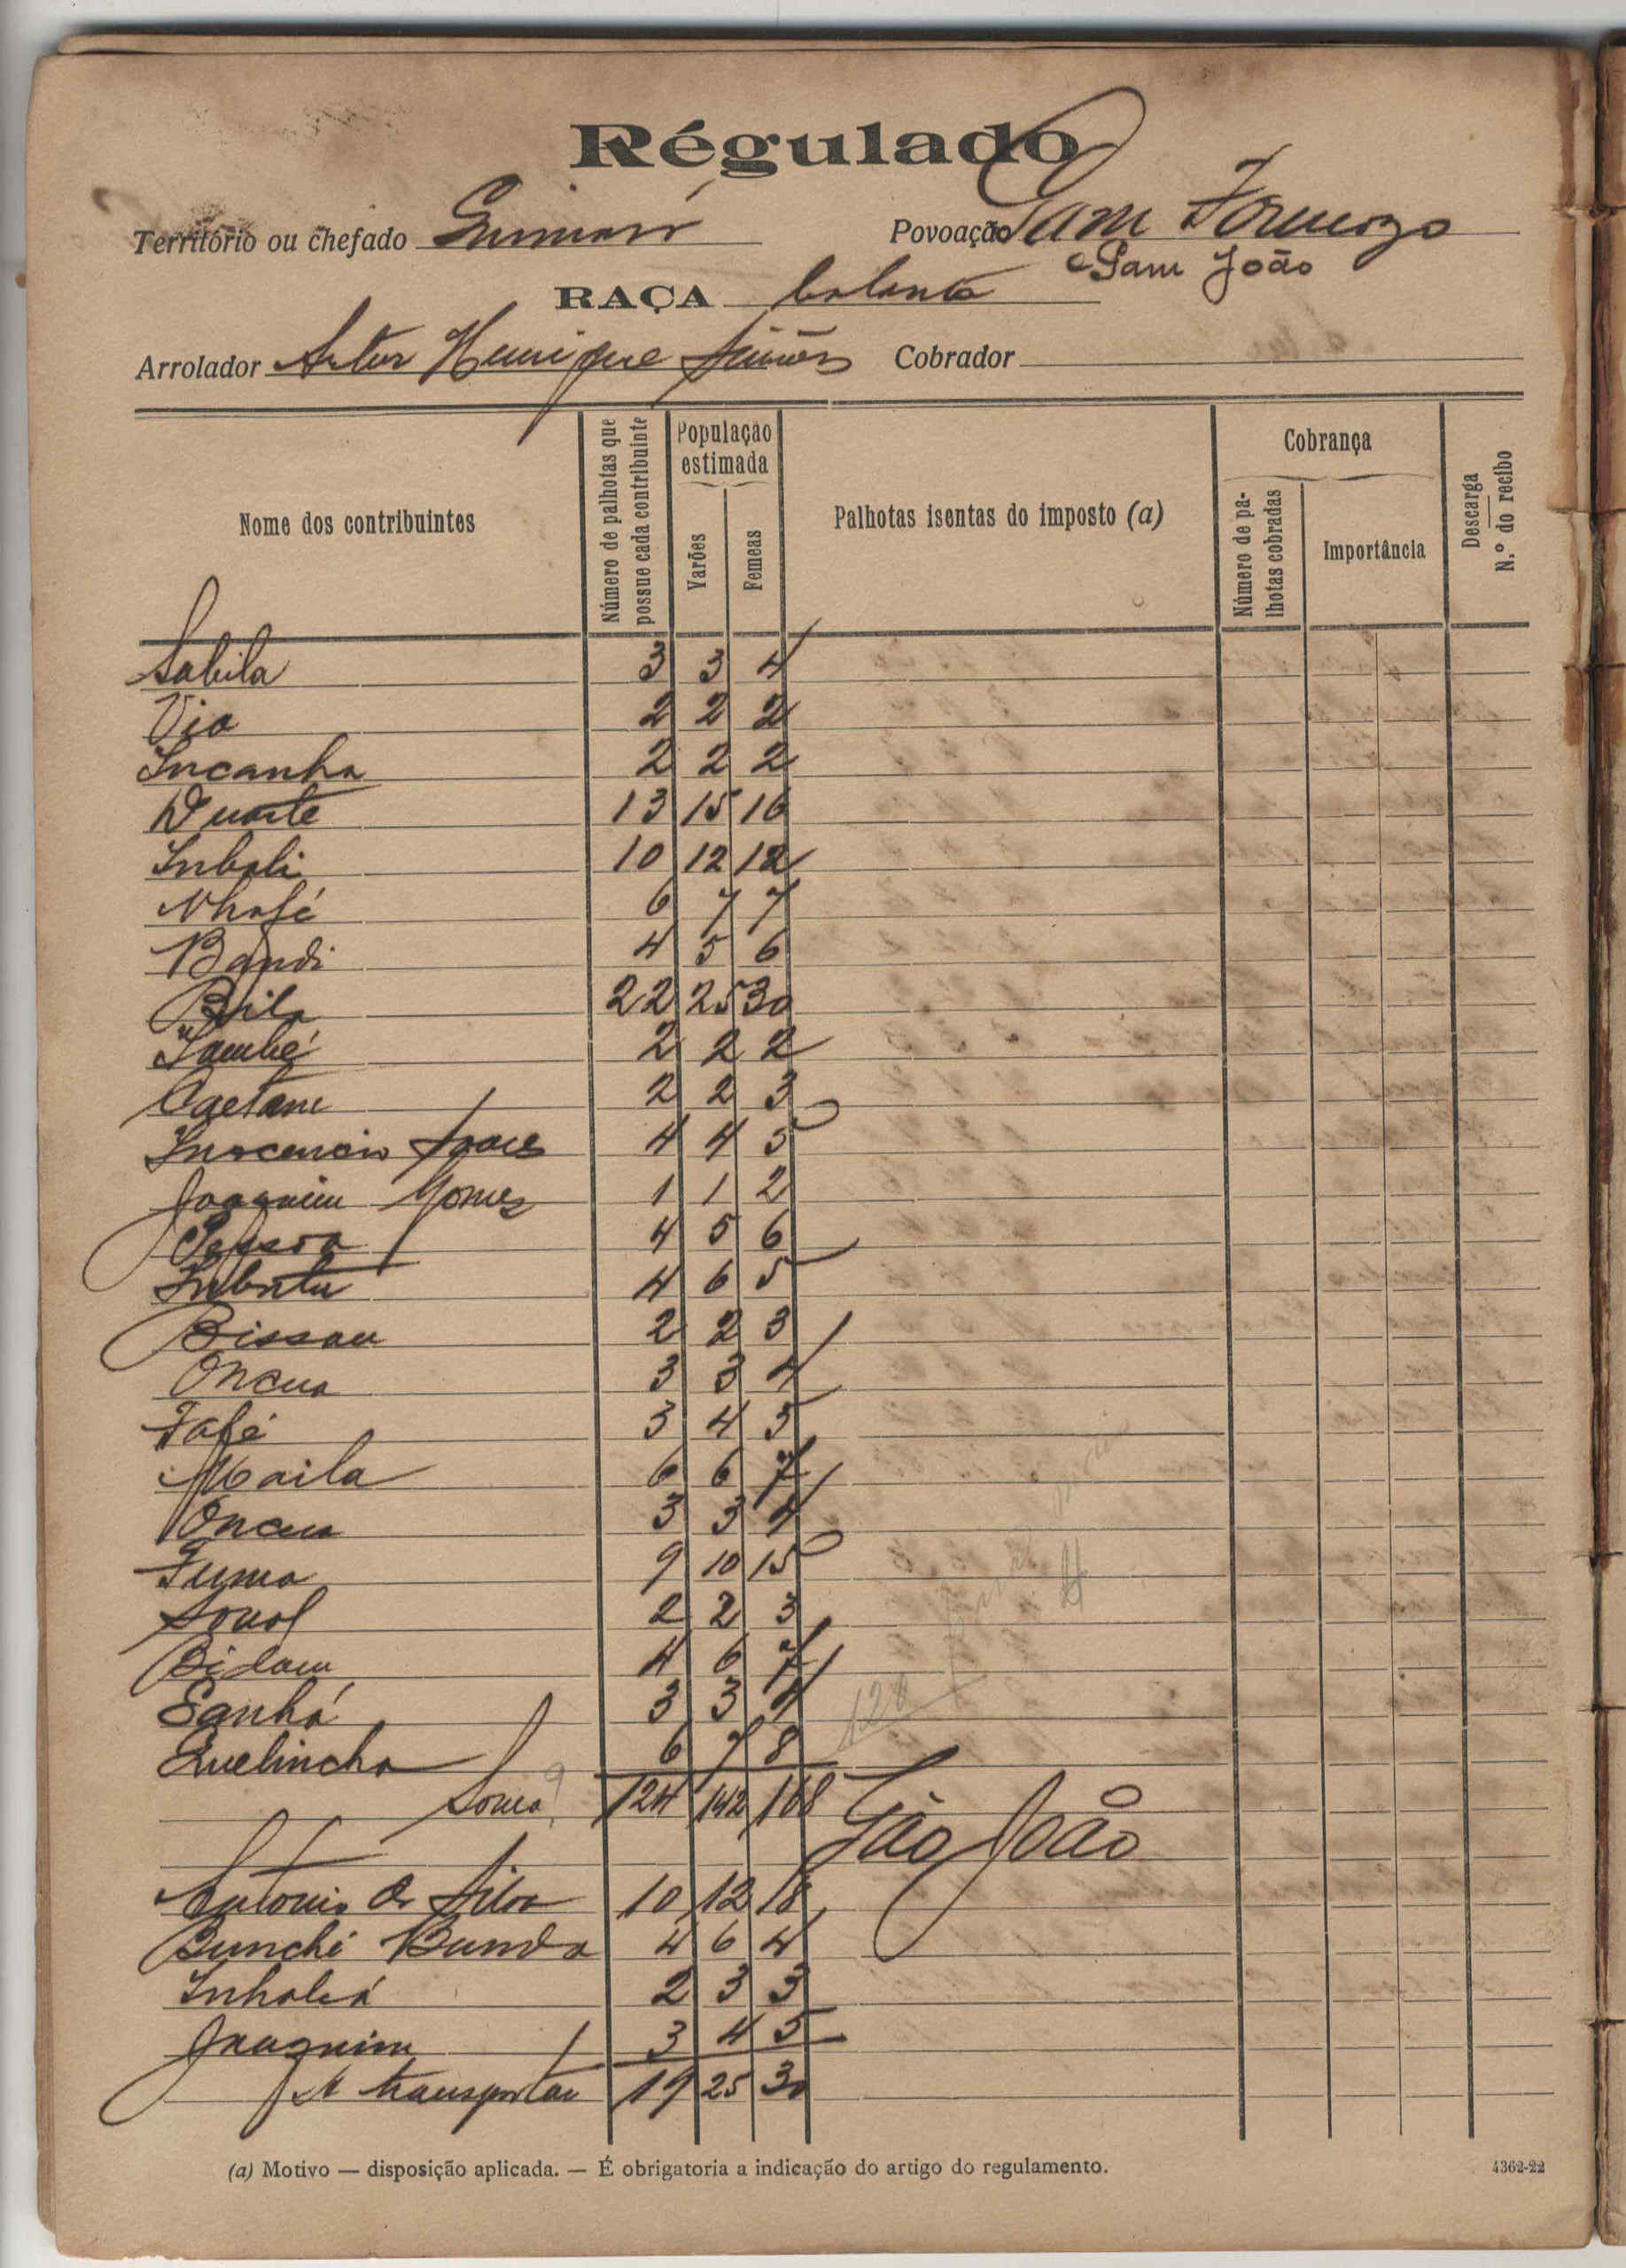 Régulado
Território ou chefado
Povoação Sam
e Sam João
RAÇA balanta
Arrolador Artur Henrique Simões Cobrador
Nome dos contribuintes
Número de palhotas que possue cada contribuinte
População estimada
Varões
Femeas
Palhotas isentas do imposto (a)
Cobrança
Número de palhotas cobradas
Importância
Descarga
N.º do recibo
Sabila 3 3 4
Via 2 2 2
Incanha 2 2 2
Duarte 13 15 16
Inbali 10 12 12
Nhafé 6 7 7
Bandi 4 5 6
Bila 22 25 30
També 2 2 2
Caetano 2 2 3
Inocencio 4 4 5
Joaquim Gomes 1 1 2
Pessoa 4 5 6
4 6 5
Bissau 2 2 3
Oncua 3 3 4
Fafé 3 4 5
Maila 6 6 7
Oncua 3 3 4
Fuma 9 10 15
2 2 3
Bidam 4 6 7
Sanhá 3 3 4
Quelincha 6 7 8
128
Soma 124 142 168
São João
Antonio da Silva 10 12 18
Bunché Bunda 4 6 4
2 3 3
Joaquim 3 4 5
A transportar 19 25 30
(a) Motivo — disposição aplicada. — É obrigatoria a indicação do artigo do regulamento.
4362-22